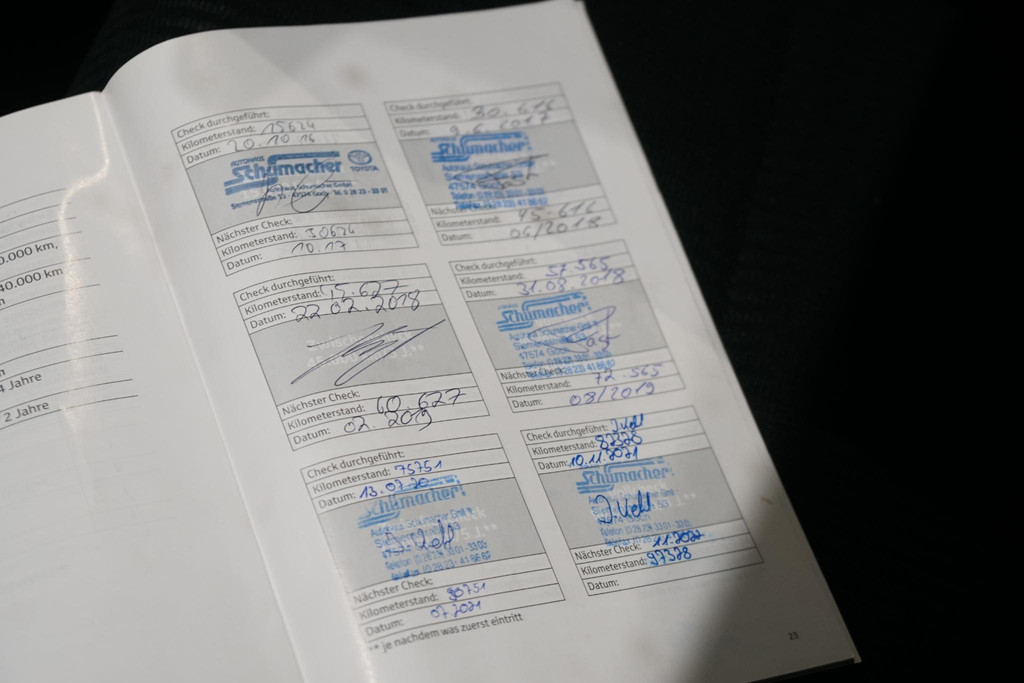 0.000 km,
40.000 km
4 Jahre
2 Jahre
Check durchgeführt:
Kilometerstand: 15624
Datum: 20.10.16
AUTOHAUS
Schumacher
TOYOTA
Autohaus Schumacher GmbH
Siemensstraße 53 · 47574 Goch · Tel. 0 28 23 - 33 01
Nächster Check:
Kilometerstand: 30624
Datum: 10.17
Check durchgeführt:
Kilometerstand: 30.616
Datum: 9.6.2017
Schumacher
47574 Goch
Nächster Check:
Kilometerstand: 45.616
Datum: 06/2018
Check durchgeführt:
Kilometerstand: 45.627
Datum: 22.02.2018
Nächster Check:
Kilometerstand: 60.627
Datum: 02.2019
Check durchgeführt:
Kilometerstand: 57.565
Datum: 31.08.2018
Schumacher
Autohaus Schumacher GmbH
47574 Goch
Nächster Check:
Kilometerstand: 72.565
Datum: 08/2019
Check durchgeführt:
Kilometerstand: 75751
Datum: 13.07.20
Schumacher
Autohaus Schumacher GmbH
Telefon (0 28 23) 33 01 - 33 05
Nächster Check:
Kilometerstand: 90751
Datum: 07.2021
Check durchgeführt:
Kilometerstand: 82328
Datum: 10.11.2021
Schumacher
Nächster Check:
Kilometerstand: 97328
Datum:
** je nachdem was zuerst eintritt
23